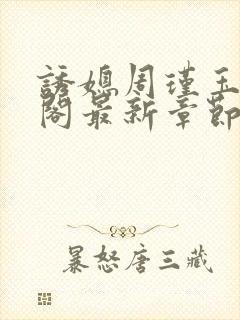 誘媳周瑾玉
閣最新章節
暴怒唐三藏